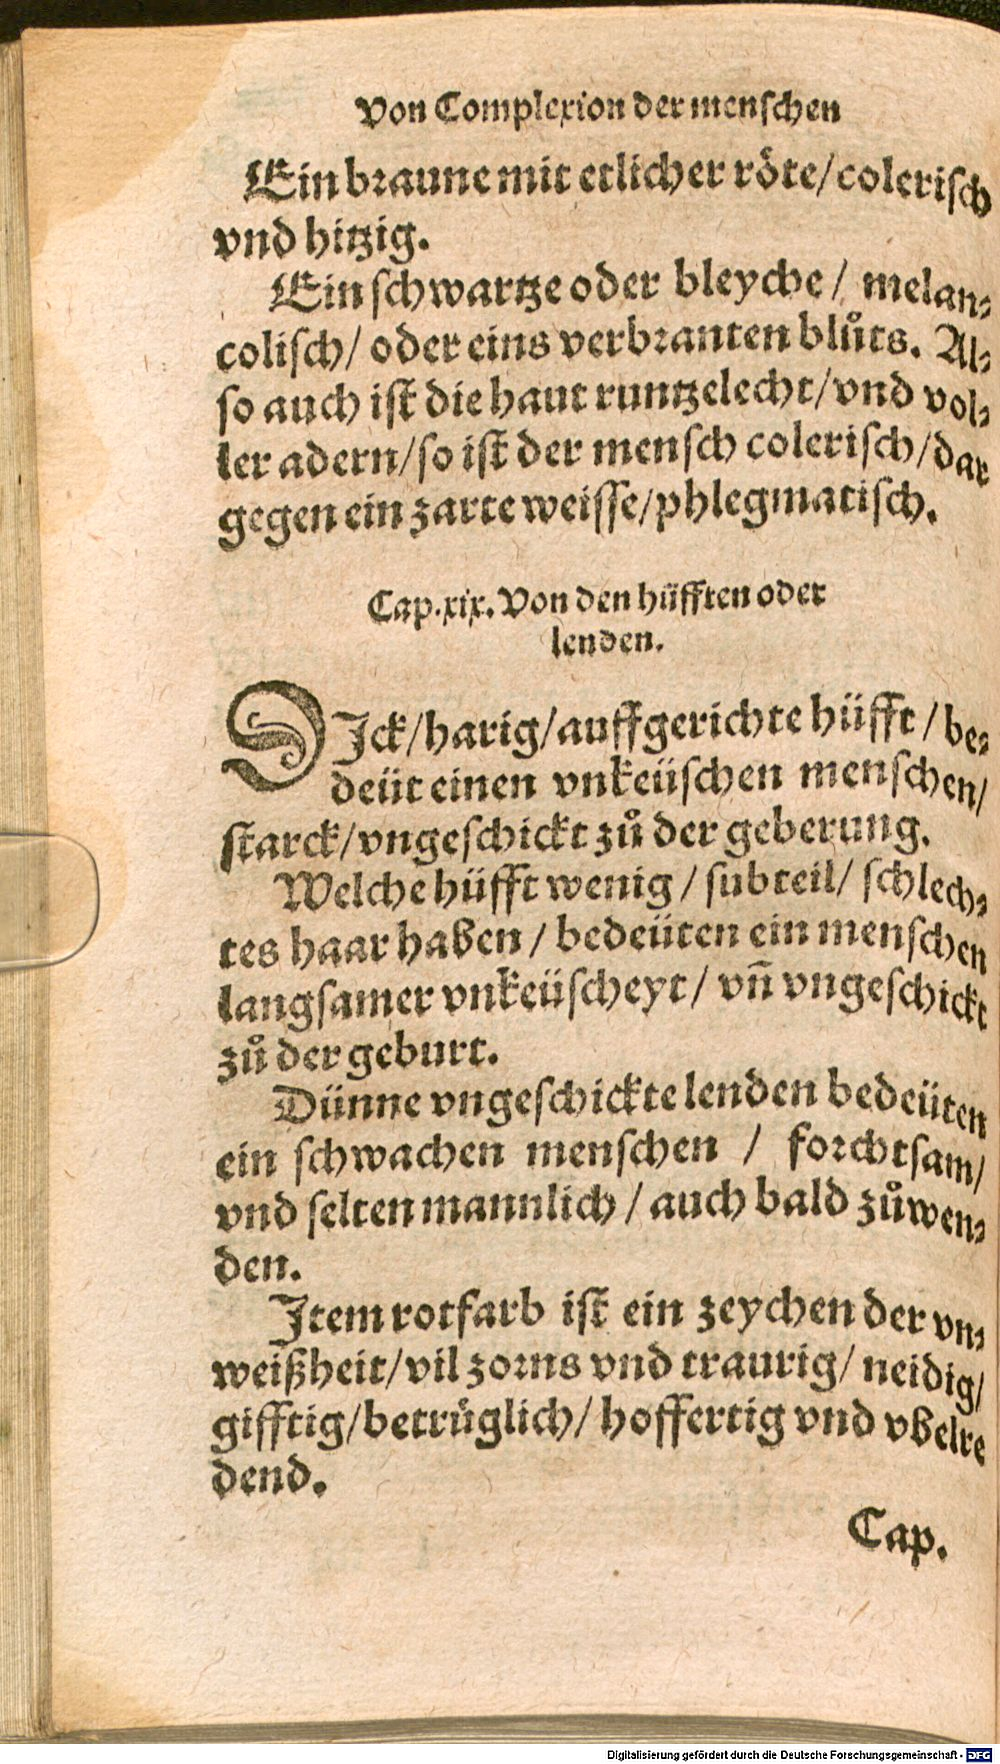 Von Complexion der menſchen
Ein braune mit etlicher röte/coleriſch
vnd hitzig.
Ein ſchwartze oder bleyche/ melan⸗
coliſch/ oder eins verbranten blůts. Al⸗
ſo auch iſt die haut runtzelecht/vnd vol⸗
ler adern/ſo iſt der menſch coleriſch/dar
gegen ein zarte weiſſe/phlegmatiſch.
Cap.xix. Von den hüfften oder
lenden.
DJck/harig/auffgerichte hüfft/be⸗
deüt einen vnkeüſchen menſchen/
ſtarck/vngeſchickt zů der geberung.
Welche hüfft wenig/ſubteil/ ſchlech⸗
tes haar haben/ bedeüten ein menſchen
langſamer vnkeüſcheyt/ vñ vngeſchickt
zů der geburt.
Dünne vngeſchickte lenden bedeüten
ein ſchwachen menſchen / forchtſam/
vnd ſelten mannlich/ auch bald zůwen⸗
den.
Jtem rotfarb iſt ein zeychen der vn⸗
weißheit/vil zorns vnd traurig/ neidig/
gifftig/betrůglich/ hoffertig vnd vbelre
dend.
Cap.
Digitalisierung gefördert durch die Deutsche Forschungsgemeinschaft - DFG